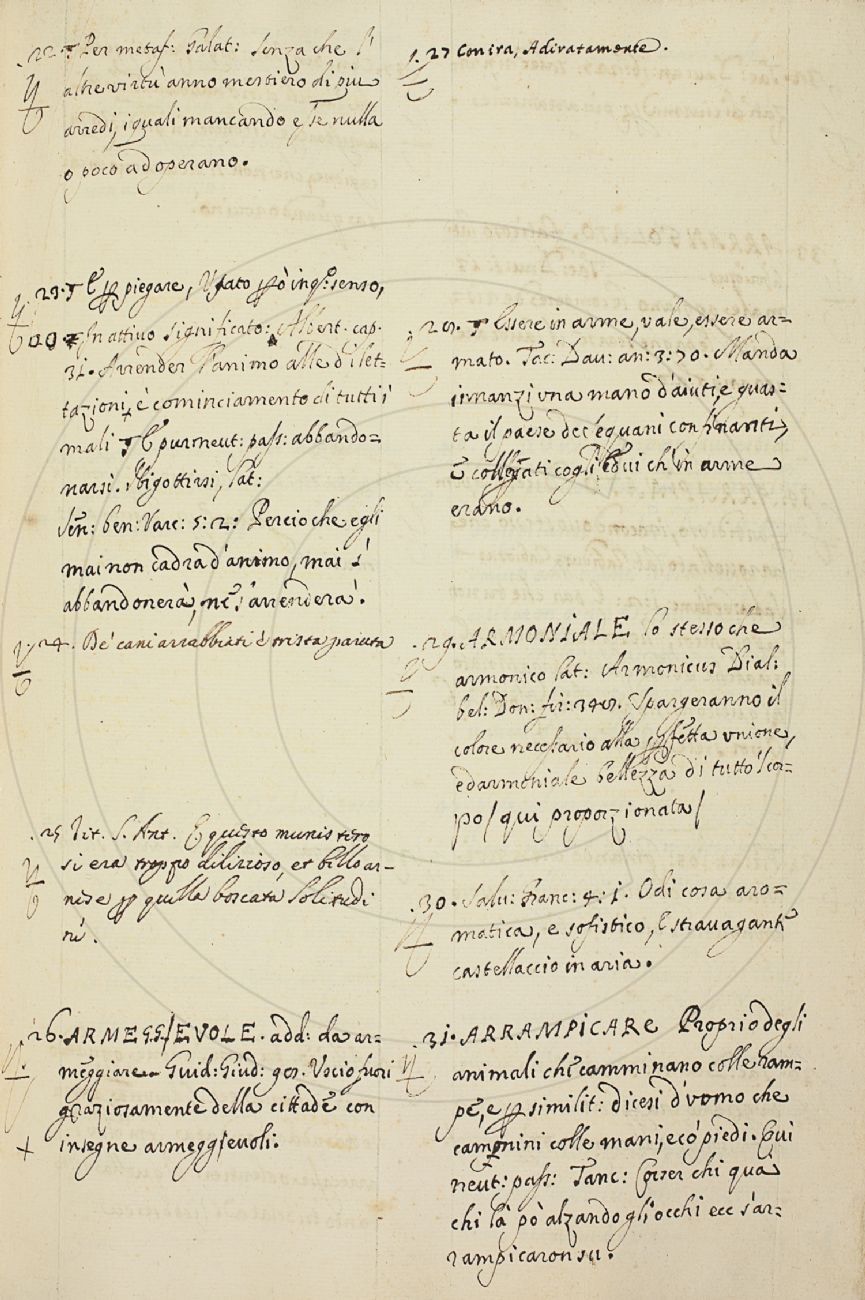 22 ₸ Per metaf: Galat: Senza che l'
altre virtù anno mestiero di piu
arredi, i quali mancando e, se nulla
o poco adoperano.
23. ₸ E p piegare, Usato pò in qsto senso,
In attivo significato: Albert. cap.
31. Arrender l'animo alle dilet=
tazioni, è cominciamento di tutti i
mali ₸ E pur neut: pass: abbando=
narsi. Sbigottirsi, Lat:
Sen: ben: Varc: 5: 2: Percioche egli
mai non cadrà d'animo, mai s'
abbandonerà, ne s'arrenderà.
24. De' cani arrabbiati è trista paruta
.25 Vit. S. Ant. E questo munistero
si era troppo dilizioso, et bello ar=
nese p quella boscata solitudi
ne.
26. ARMEGGIEVOLE. add: da ar=
meggiare Guid: Giud: 98. Uscio fuori
graziosamente della cittade con
insegne armeggievoli.
27 Con ira, Adiratamente.
28. ₸ Essere in arme, vale, essere ar=
mato. Tac: Dav: an: 3: 70. Manda
innanzi una mano d'aiuti, e guas=
ta il paese de' sequani confinanti,
e collegati cogli edui ch'in arme
erano.
29. ARMONIALE lo stesso che
armonico Lat: Armonicus Dial:
bel: Don: fir: 348. Spargeranno il
colore necessario alla pfetta unione,
ed armoniale bellezza di tutto 'l cor=
po / qui proporzionata /
30. Salv: Granc: 4: 1. Odi cosa aro=
matica, e sofistico, e stravagante
castellaccio in aria.
31. ARRAMPICARE Proprio degli
animali che camminano colle ram=
pe, e p similit: dicesi d'uomo che
cammini colle mani, e co' piedi. Qui
neut: pass: Tanc: Corser chi quà
chi là pò alzando gli occhi ecc s'ar=
rampicaron su.